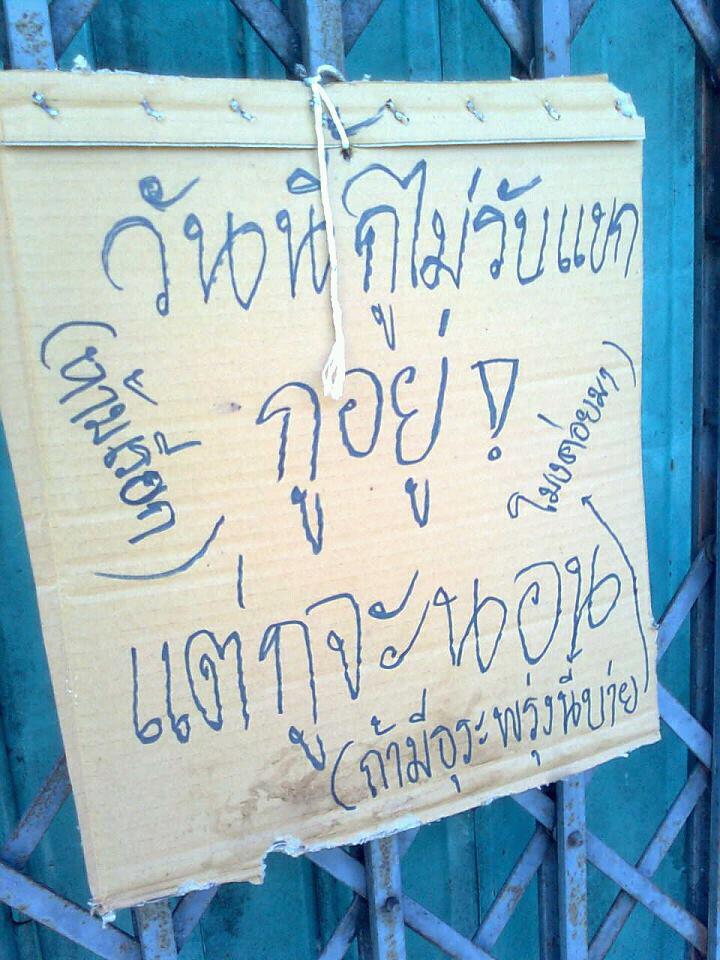 วันนี้กูไม่รับแขก
กูอยู่!
(ห้ามเรียก)
แต่กูจะนอน
(ถ้ามีธุระพรุ่งนี้บ่าย
โมงค่อยมา)